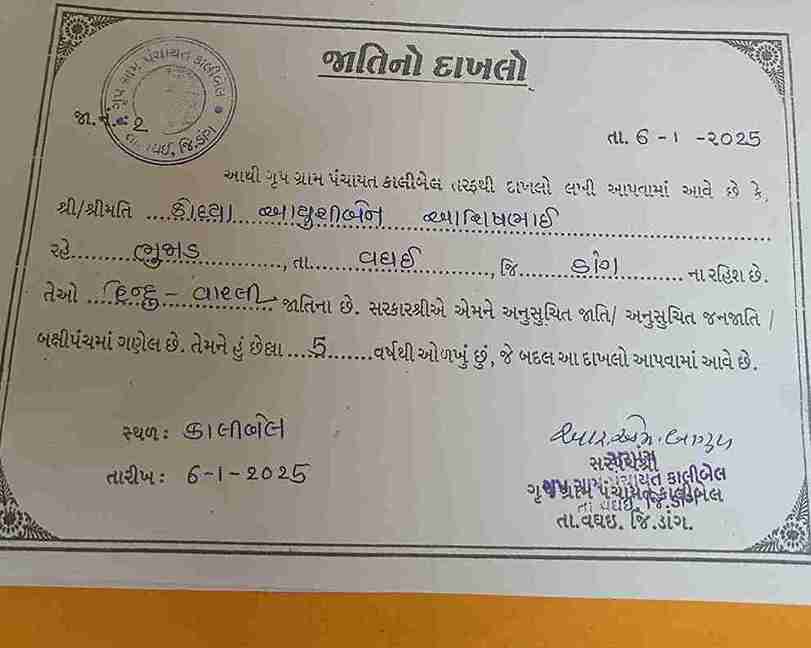 જાતિનો દાખલો
ગૃપ ગ્રામ પંચાયત કાલીબેલ
તા.વઘઈ, જિ.ડાંગ
જા.નં. 2
તા. 6 - 1 - 2025
આથી ગૃપ ગ્રામ પંચાયત કાલીબેલ તરફથી દાખલો લખી આપવામાં આવે છે કે,
શ્રી/શ્રીમતિ .... આયુશીબેન આશિષભાઈ
રહે. ભુજાડ, તા. વઘઈ, જિ. ડાંગ ના રહિશ છે.
તેઓ હિન્દુ - વારલી જાતિના છે. સરકારશ્રીએ એમને અનુસુચિત જાતિ/ અનુસુચિત જનજાતિ /
બક્ષીપંચમાં ગણેલ છે. તેમને હું છેલા ....5....... વર્ષથી ઓળખું છું, જે બદલ આ દાખલો આપવામાં આવે છે.
સ્થળ: કાલીબેલ
તારીખ: 6-1-2025
સરપંચશ્રી
ગૃપ ગ્રામ પંચાયત કાલીબેલ
તા.વઘઇ. જિ.ડાંગ.